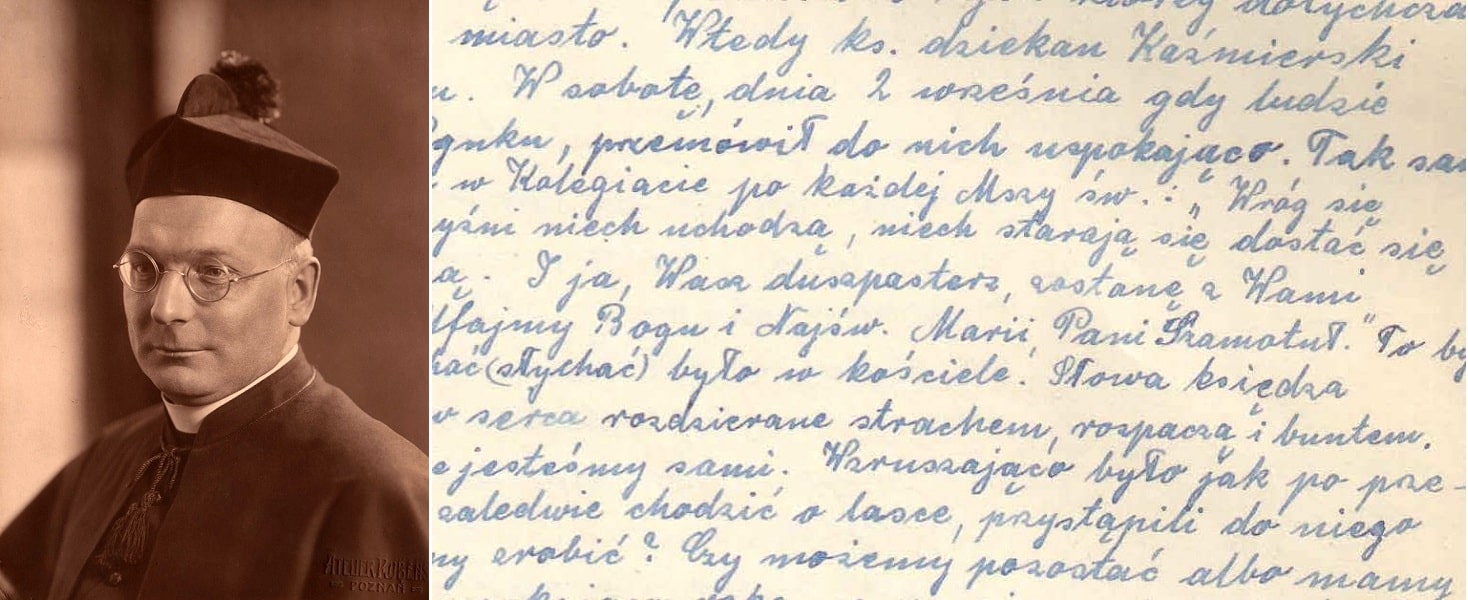 dotychcza
miasto. Wtedy ks. dziekan Kaźmierski
u. W sobotę, dnia 2 września gdy ludzie
ynku, przemówił do nich uspokająco. Tak sam
w Kolegiacie po każdej Mszy św.: „Wróg się
yźni niech uchodzą, niech starają się dostać się
ą. I ja, Wasz duszpasterz, zostanę z Wami
fajmy Bogu i Najśw. Marii, Pani Szamotuł." To by
hać (słychać) było w kościele. Słowa księdza
w serca rozdzierane strachem, rozpaczą i buntem.
e jesteśmy sami. Wzruszająco było jak po prze-
zaledwie chodzić o lasce, przystąpili do niego
my zrobić? Czy możemy pozostać albo mamy
POZNAŃ